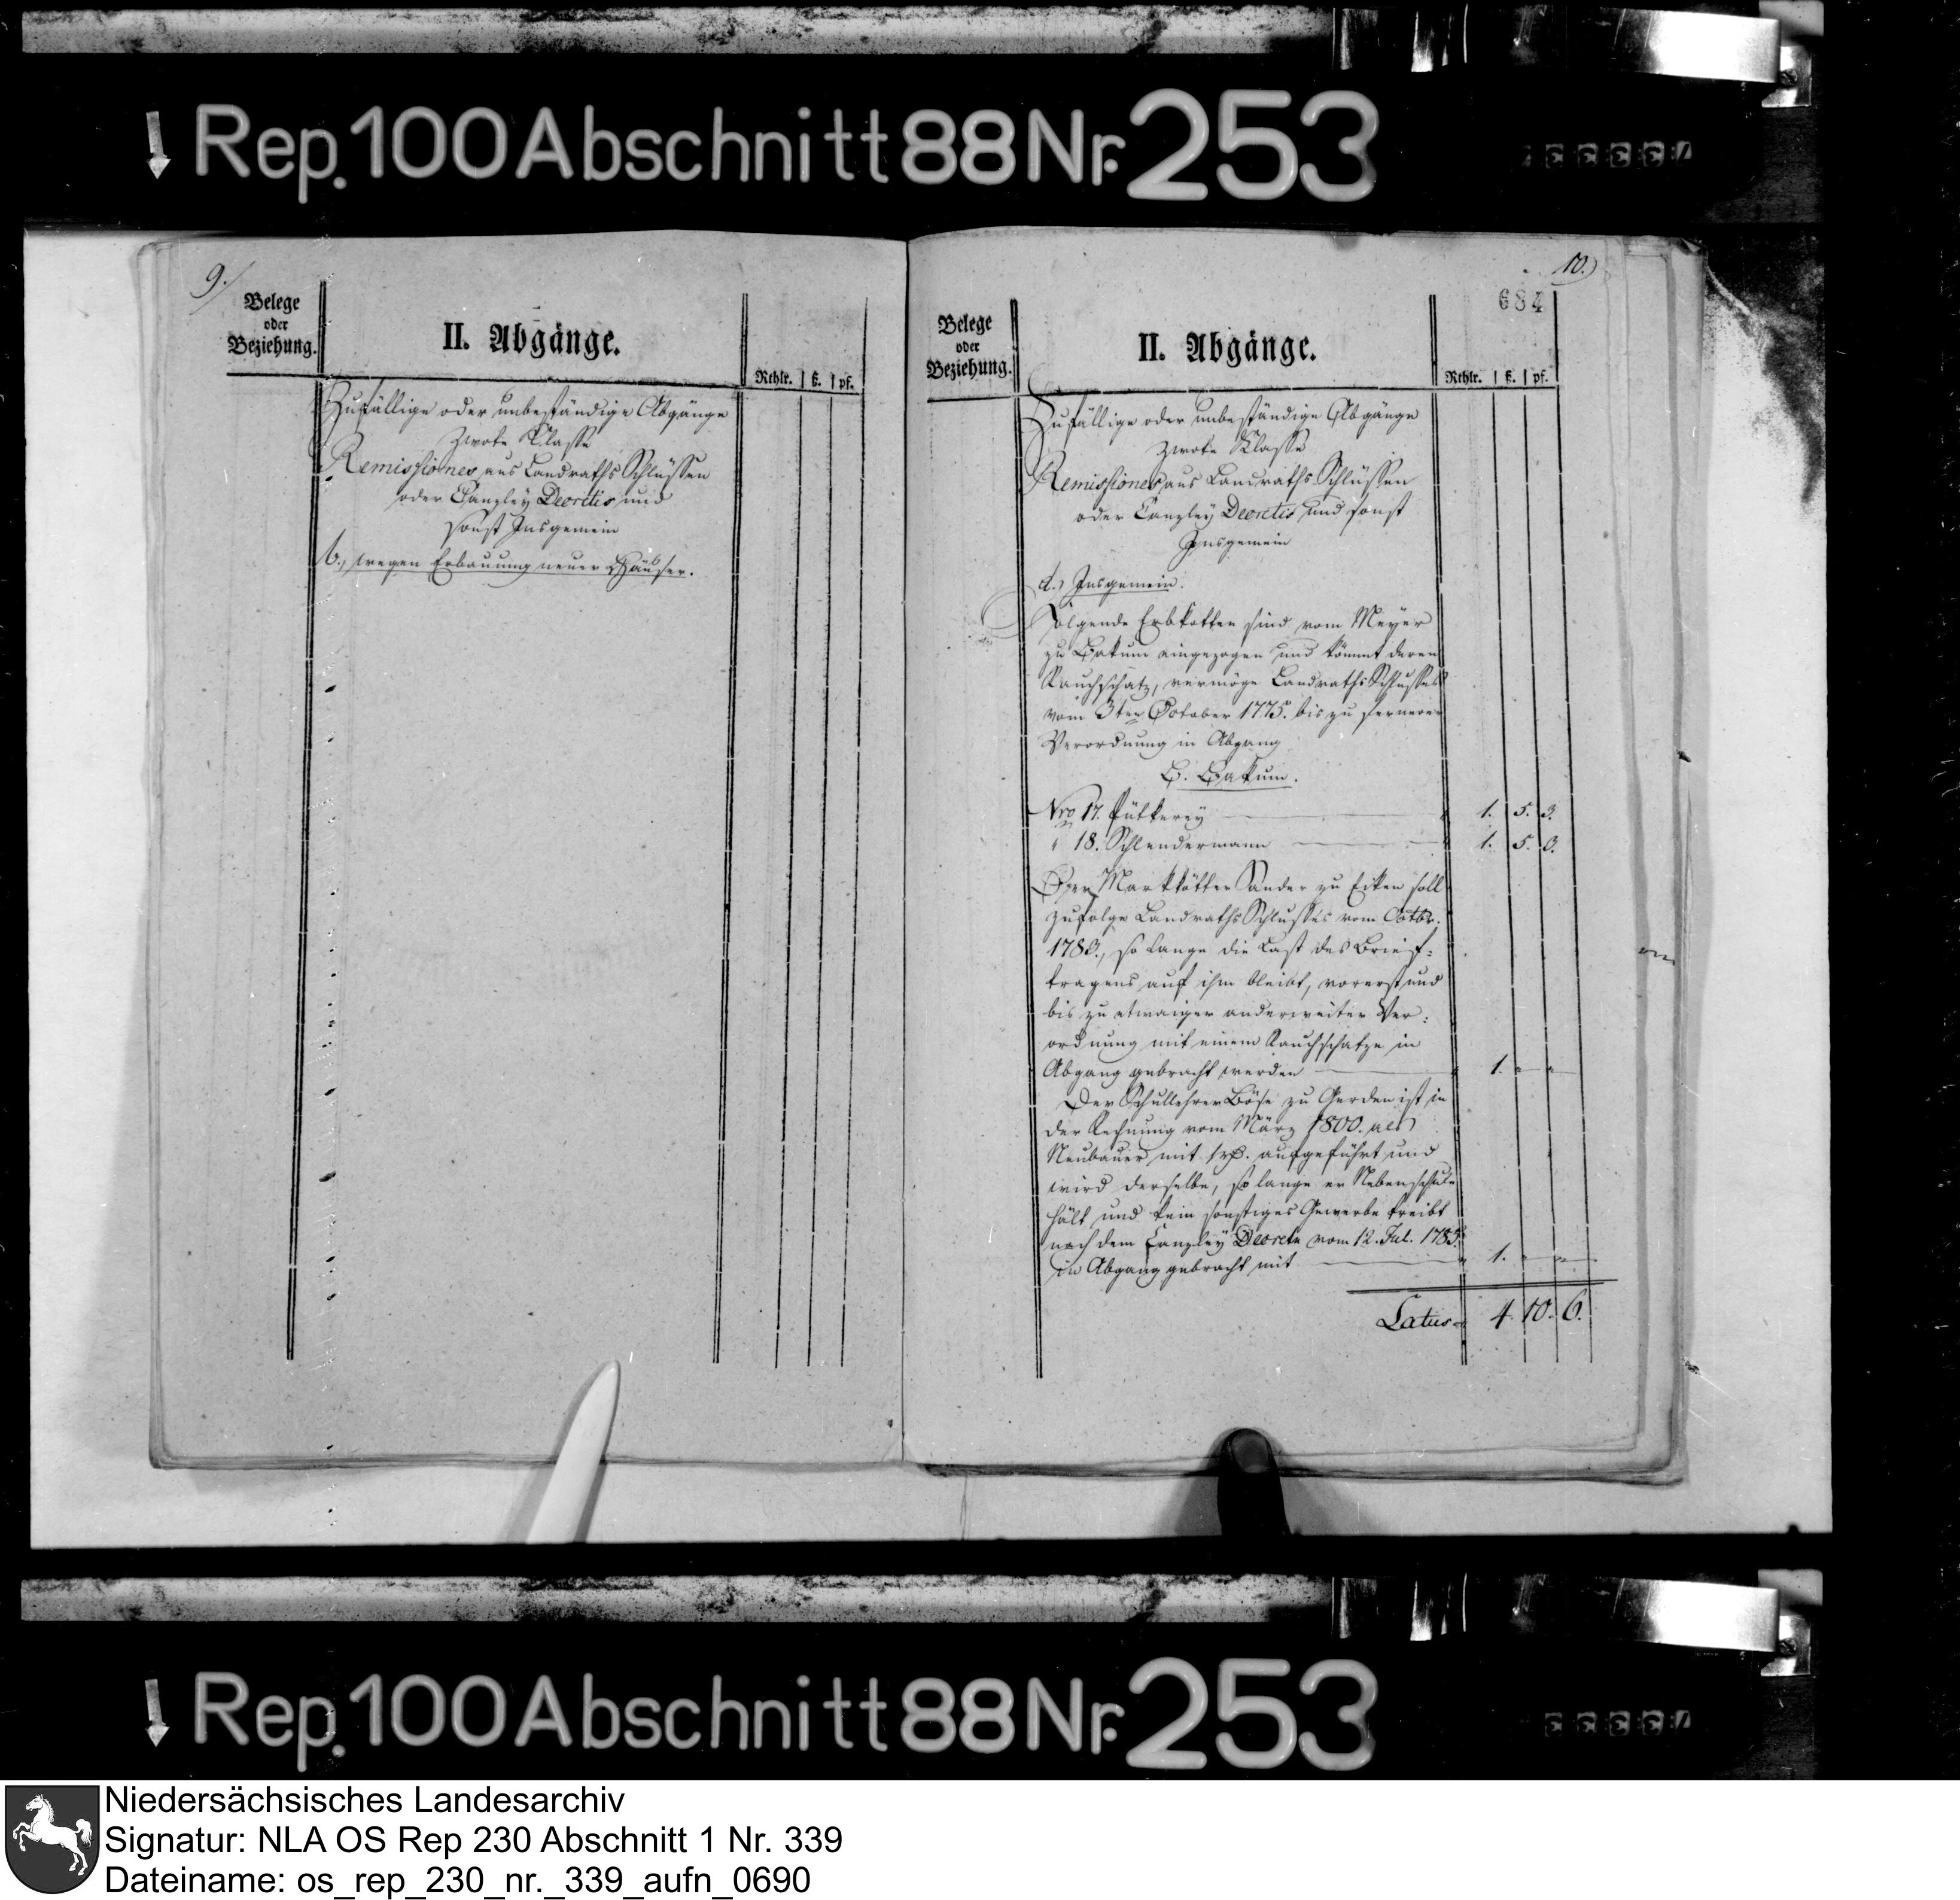 Rep. 100 Abschnitt 88 Nr. 253
9.)
Belege
oder
Beziehung.
II. Abgänge.
Rthlr. | ß. | pf.
Zufällige oder unbeständige Abgänge
Zwote Klasse
Remissiones aus Landraths Schlüssen
oder Canzley Decretis und
sonst Insgemein
b., wegen Erbauung neuer Häuser.
10.)
684
Belege
oder
Beziehung.
II. Abgänge.
Rthlr. | ß. | pf.
Zufällige oder unbeständige Abgänge
Zwote Klasse
Remissiones aus Landraths Schlüssen
oder Canzley Decretis und sonst
Insgemein
d.) Insgemein.
Folgende Erbkotten sind vom Meyer
zu Bakum eingezogen und kömmt deren
Rauchschatz, vermöge Landraths Schlusses
vom 3ten October 1775. bis zu fernerer
Verordnung in Abgang
B. Bakum.
Nro 17. Pütkerey 1. 5. 3.
" 18. Schlendermann 1. 5. 3.
Der Markkötter Sander zu Eiken soll
zufolge Landraths Schlusses vom Octbr.
1783., so lange die Last des Brief-
tragens auf ihm bleibt, vorerst und
bis zu etwaiger anderweiter Ver-
ordnung mit einem Rauchschatze in
Abgang gebracht werden 1. " "
Der Schullehrer Böse zu Gerden ist in
der Rechnung vom März 1800. als
Neubauer mit 1 rß. aufgeführt und
wird derselbe, so lange er Nebenschule
hält und kein sonstiges Gewerbe treibt
nach dem Canzley Decreto vom 12. Jul. 1785.
in Abgang gebracht mit 1. " "
Latus 4. 10. 6.
Rep. 100 Abschnitt 88 Nr. 253
Niedersächsisches Landesarchiv
Signatur: NLA OS Rep 230 Abschnitt 1 Nr. 339
Dateiname: os_rep_230_nr._339_aufn_0690